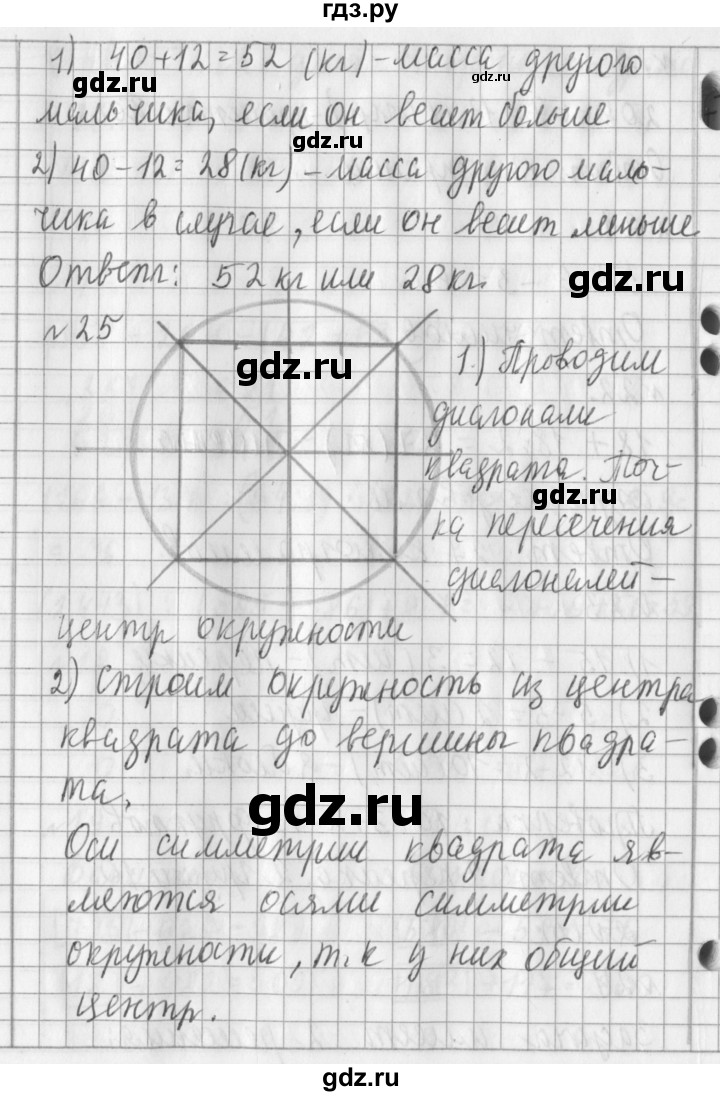 гдз.ру
1) 40+12=52 (кг) - масса другого
мальчика, если он весит больше
2) 40-12=28(кг) - масса другого маль-
чика в случае, если он весит меньше
Ответ: 52 кг или 28 кг.
№25
1.) Проводим
диагонали
квадрата. Точ-
ка пересечения
диагоналей -
центр окружности
2) Строим окружность из центра
квадрата до вершины квадра-
та.
Оси симметрии квадрата яв-
ляются осями симметрии
окружности, т.к у них общий
центр.
gdz.ru
gdz.ru
gdz.ru
gdz.ru
gdz.ru
gdz.ru
gdz.ru
gdz.ru